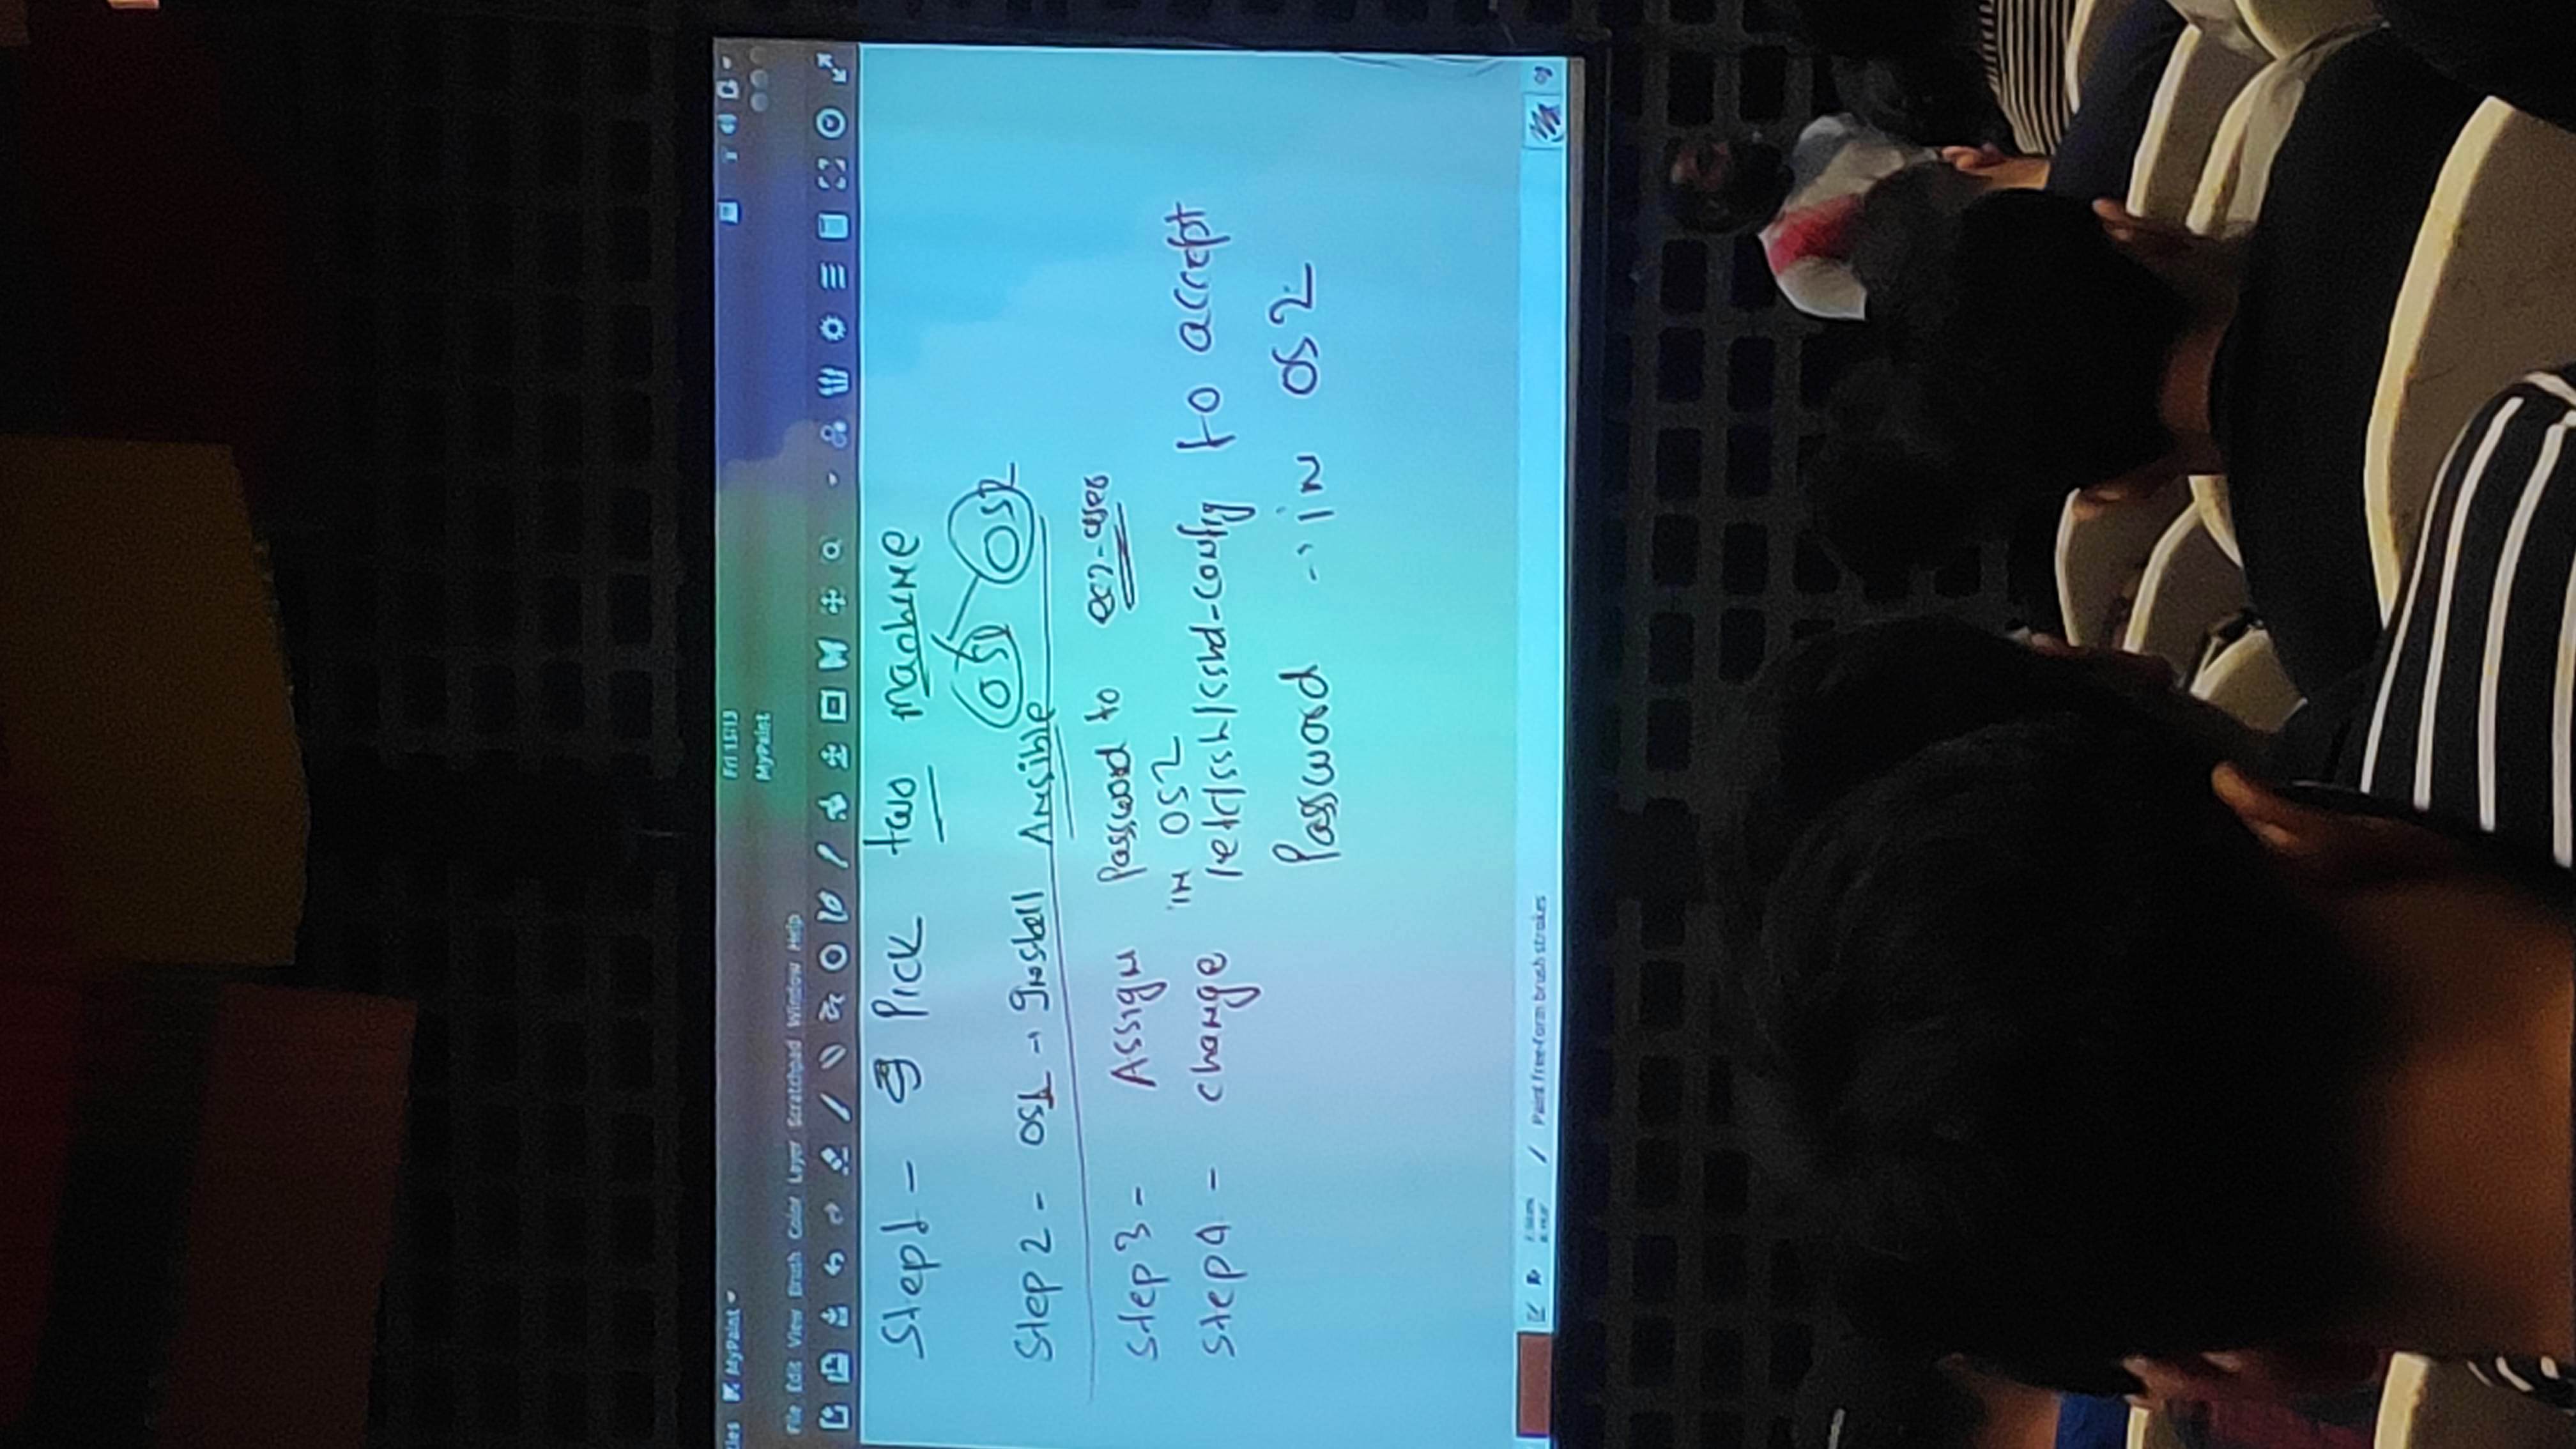 MyPaint
Fri 15:13
MyPaint
File Edit View Brush Color Layer Scratchpad Window Help
Step1 - Pick two machine
OS1 OS2
Step 2 - OS1 → Install Ansible
Step 3 - Assign Password to ec2-user
in OS2
Step 4 - change /etc/ssh/sshd-config to accept
Password → in OS2
Paint free-form brush strokes